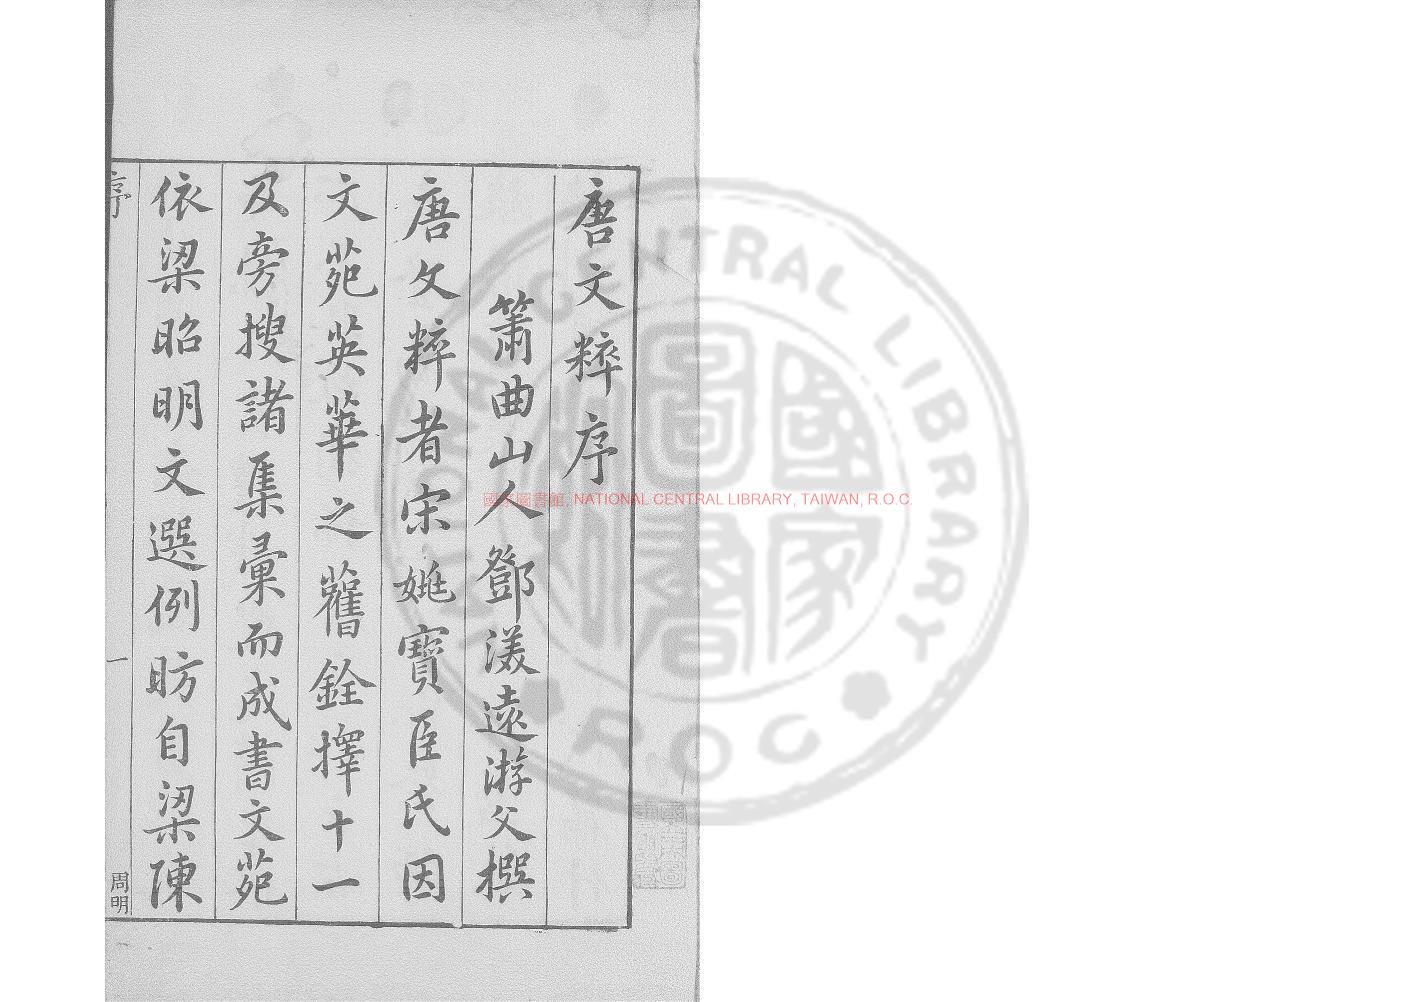 唐文粹序
簫曲山人鄧渼遠游父撰
唐文粹者宋姚寶臣氏因
文苑英華之舊銓擇十一
及旁搜諸集彙而成書文苑
依梁昭明文選例昉自梁陳
序
一
周明
國家圖書館, NATIONAL CENTRAL LIBRARY, TAIWAN, R.O.C.
NATIONAL CENTRAL LIBRARY
ROC
國家圖書